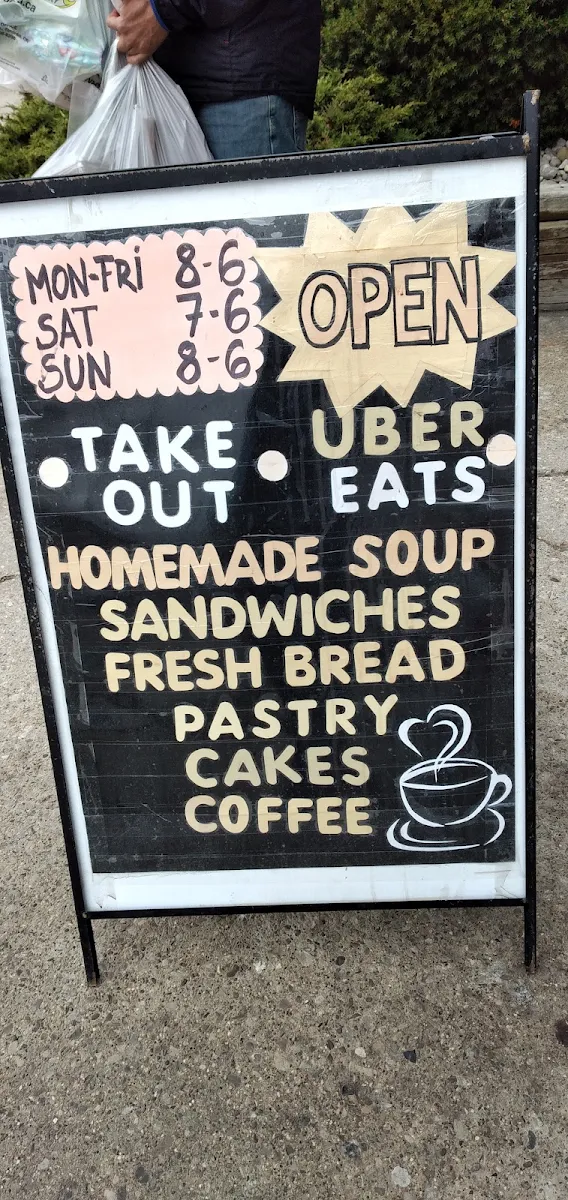 MON-FRI 8-6
SAT 7-6
SUN 8-6
OPEN
TAKE OUT
UBER EATS
HOMEMADE SOUP
SANDWICHES
FRESH BREAD
PASTRY
CAKES
COFFEE